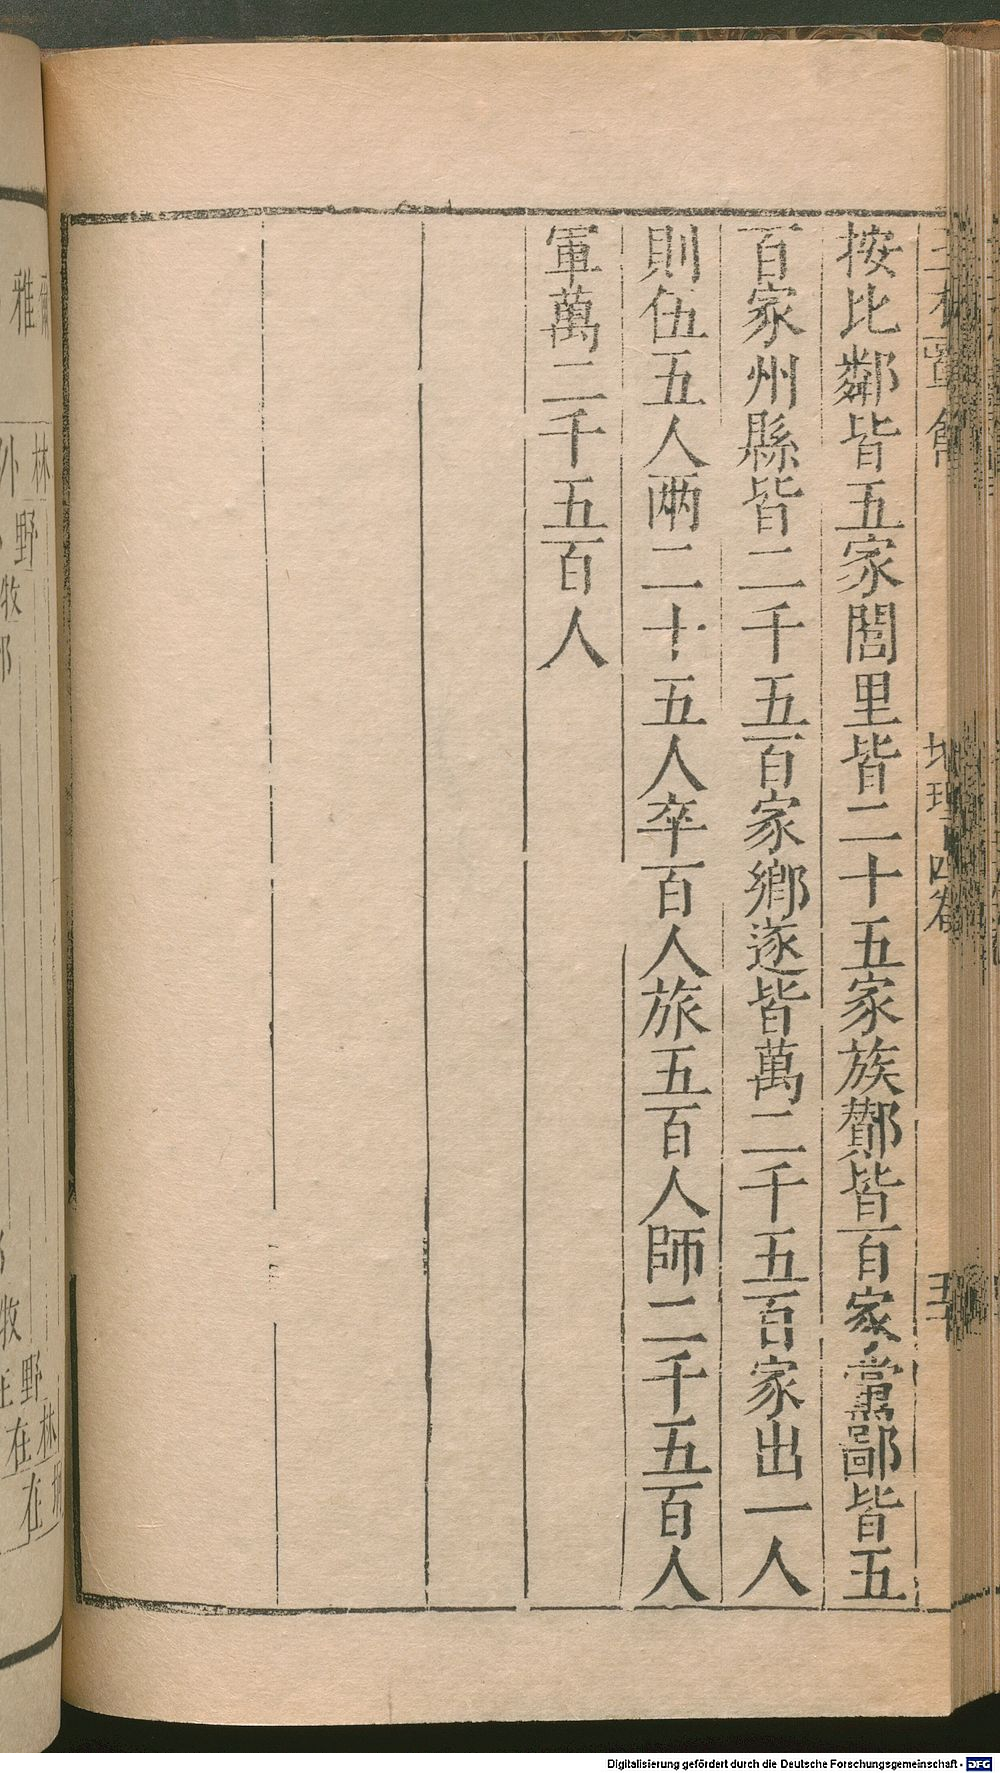 按比鄰皆五家閭里皆二十五家族酇皆百家黨鄙皆五
百家州縣皆二千五百家鄉遂皆萬二千五百家出一人
則伍五人兩二十五人卒百人旅五百人師二千五百人
軍萬二千五百人
地理 四卷
雅
林
外
野
牧
牧
野
林
在
在
Digitalisierung gefördert durch die Deutsche Forschungsgemeinschaft - DFG